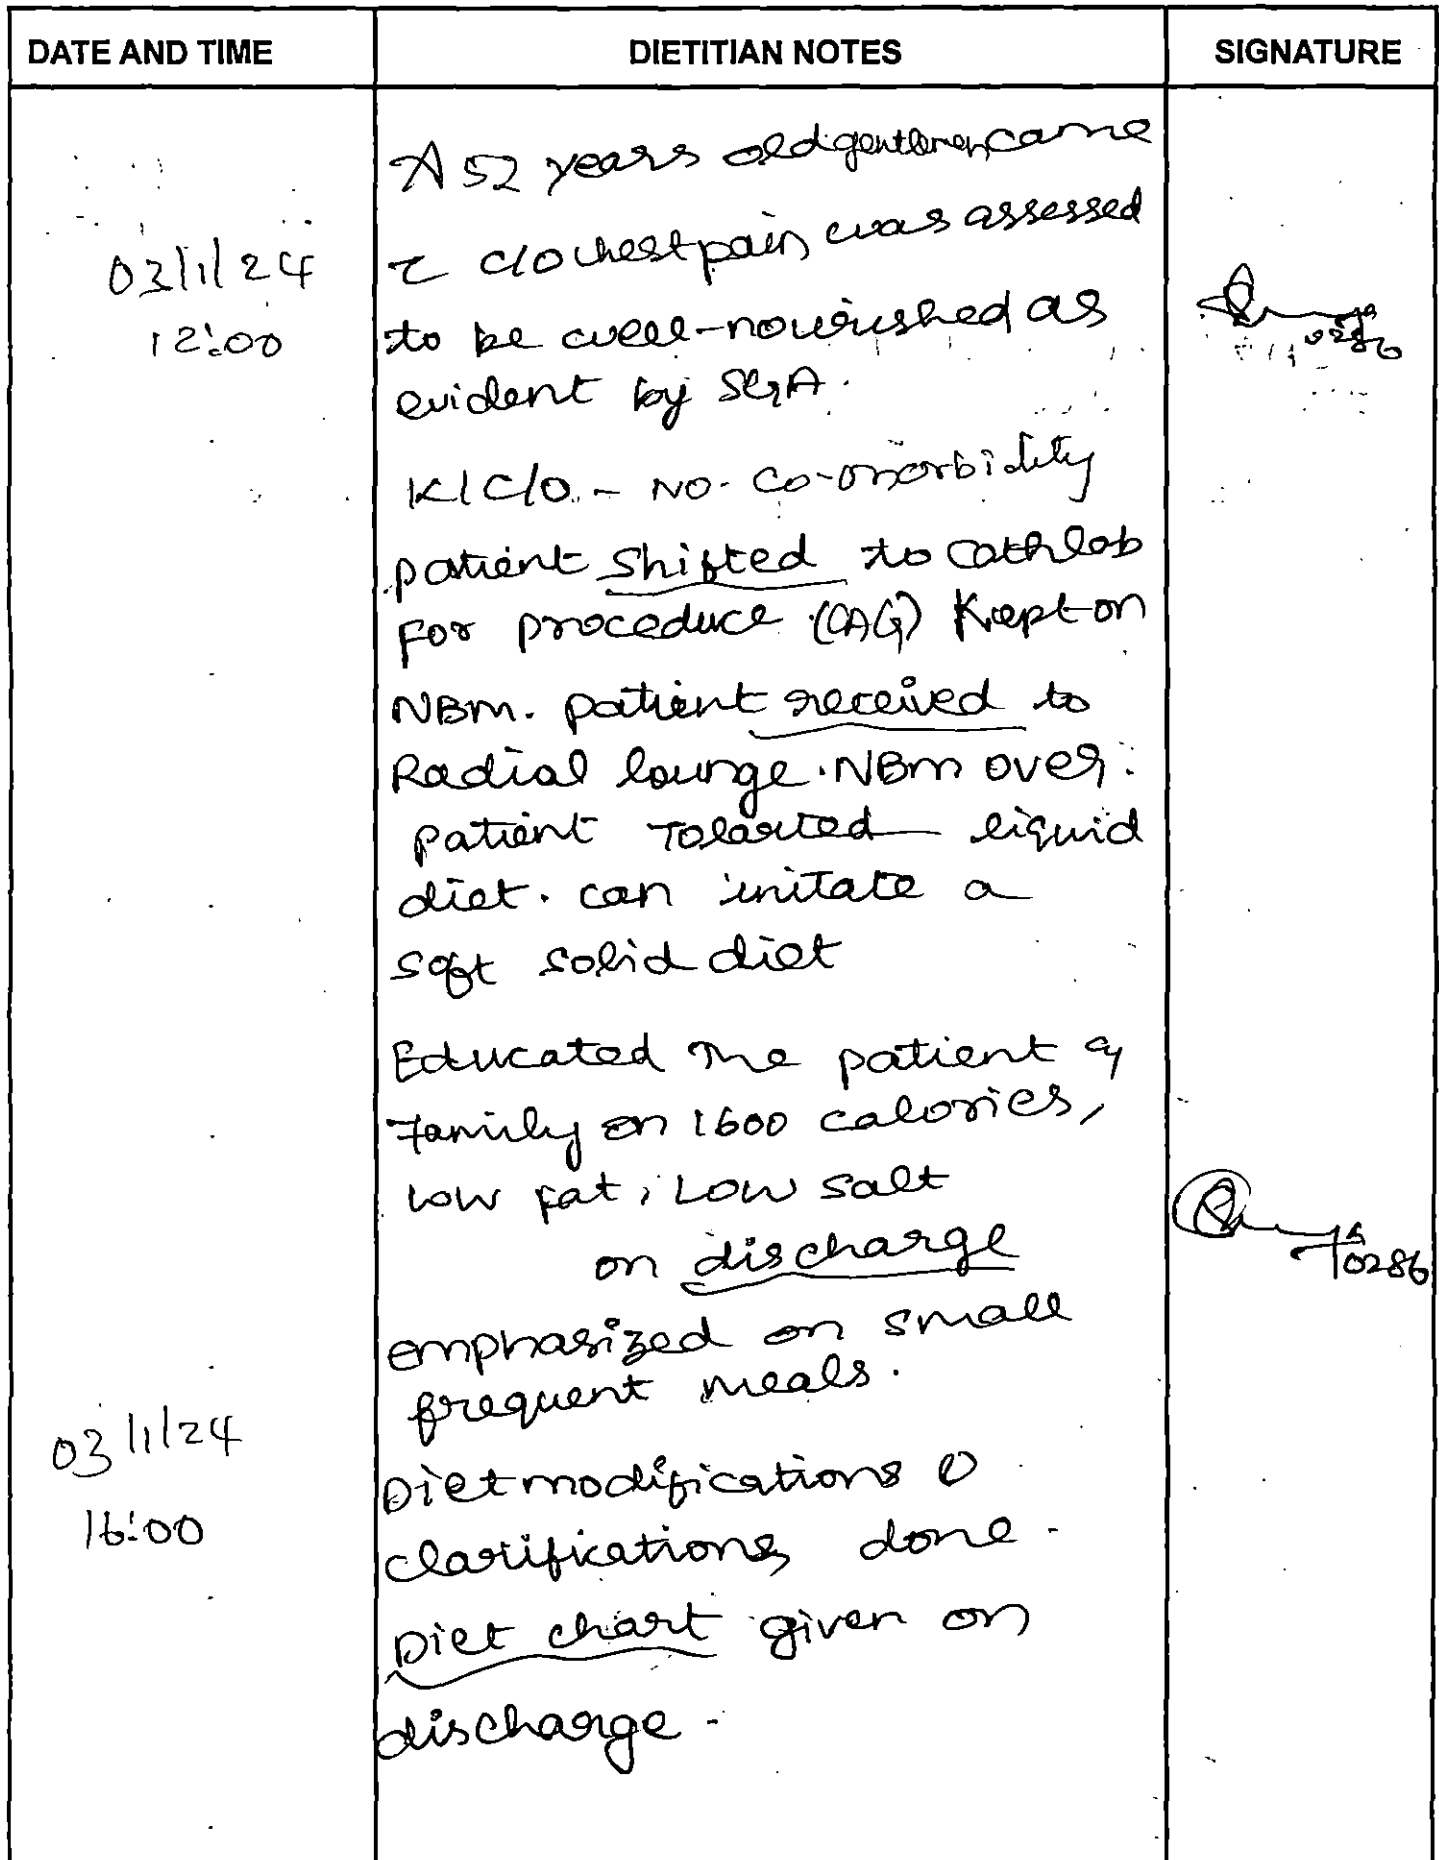 DATE AND TIME DIETITIAN NOTES SIGNATURE
A 52 years old gentlemen came
03/1/24 c̄ c/o chest pain, was assessed
12:00 to be well-nourished as 0286
evident by SGA.
K/C/O - NO. CO-morbidity
patient shifted to cathlab
For procedure (CAG) Kept on
NBM. patient received to
Radial lounge. NBM over.
patient Tolarted liquid
diet. can initate a
soft solid diet
Educated The patient &
Family on 1600 calories,
low fat, Low salt
on discharge 0286
emphasized on small
frequent meals.
03/1/24 Diet modifications
16:00 clarifications done.
Diet chart given on
discharge.